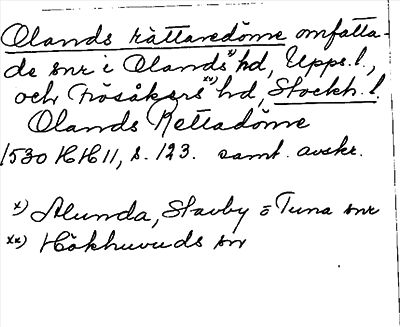 Olands rättaredöme omfatta-
de snr i Olands x) hd, Upps. l.,
och Frösåkers xx) hd, Stockh. l.
Olands Rettadöme
1530 HH 11, s. 123. samt. avskr.
x) Alunda, Stavby o Tuna snr
xx) Hökhuvuds sn